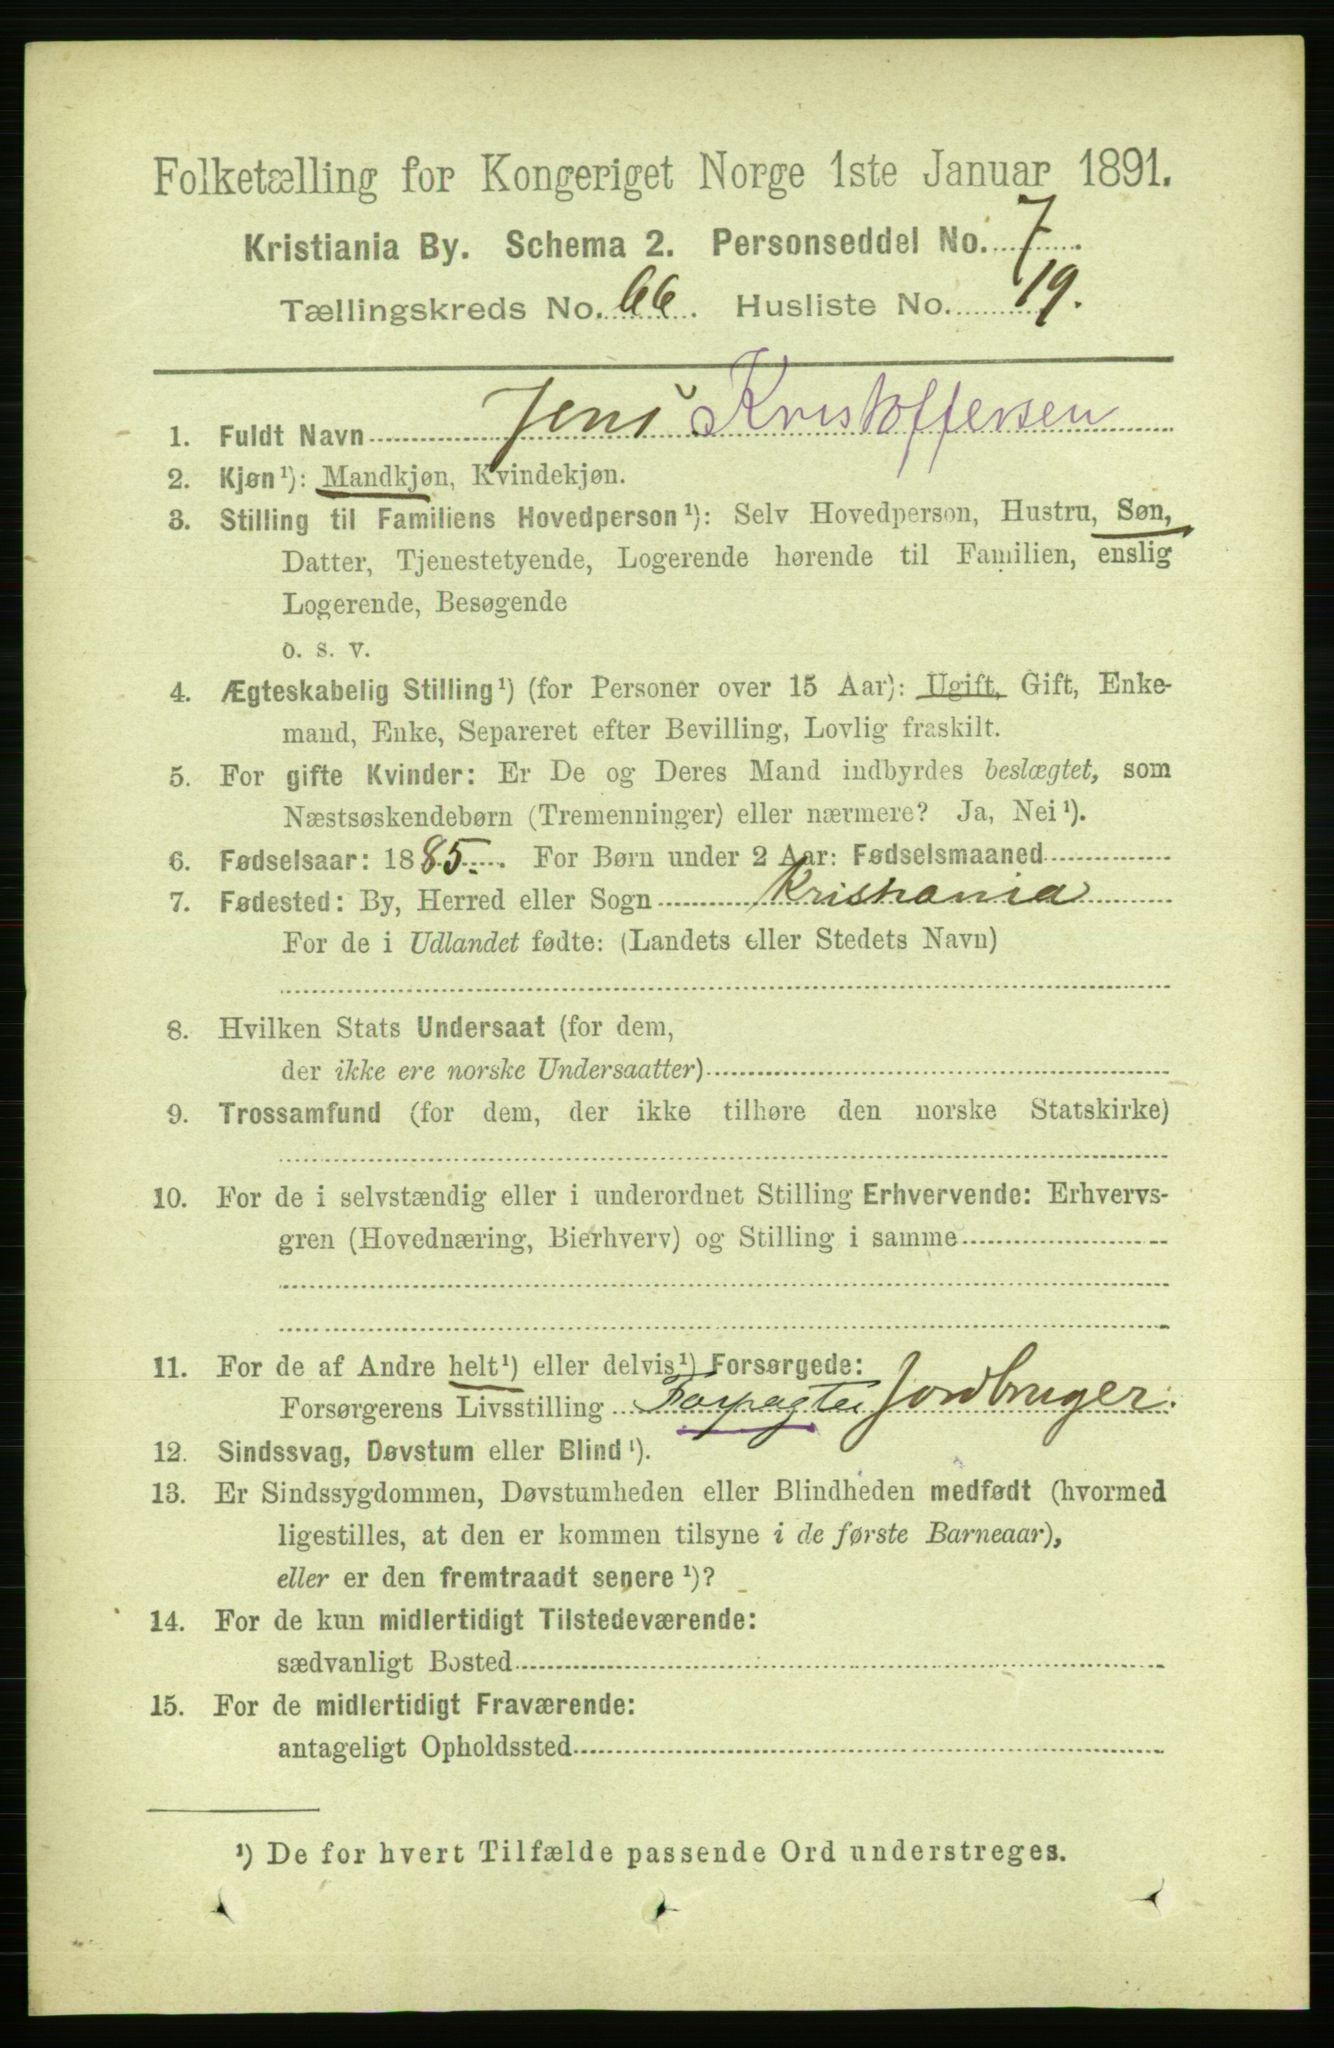 Folketælling for Kongeriget Norge 1ste Januar 1891.
Kristiania By. Schema 2. Personseddel No. 7.
Tællingskreds No. 66. Husliste No. 19.
1. Fuldt Navn Jens Kristoffersen
2. Kjøn¹): Mandkjøn, Kvindekjøn.
3. Stilling til Familiens Hovedperson¹): Selv Hovedperson, Hustru, Søn,
Datter, Tjenestetyende, Logerende hørende til Familien, enslig
Logerende, Besøgende
o. s. v.
4. Ægteskabelig Stilling¹) (for Personer over 15 Aar): Ugift, Gift, Enke-
mand, Enke, Separeret efter Bevilling, Lovlig fraskilt.
5. For gifte Kvinder: Er De og Deres Mand indbyrdes beslægtet, som
Næstsøskendebørn (Tremenninger) eller nærmere? Ja, Nei¹).
6. Fødselsaar: 1885. For Børn under 2 Aar: Fødselsmaaned
7. Fødested: By, Herred eller Sogn Kristiania
For de i Udlandet fødte: (Landets eller Stedets Navn)
8. Hvilken Stats Undersaat (for dem,
der ikke ere norske Undersaatter)
9. Trossamfund (for dem, der ikke tilhøre den norske Statskirke)
10. For de i selvstændig eller i underordnet Stilling Erhvervende: Erhvervs-
gren (Hovednæring, Bierhverv) og Stilling i samme
11. For de af Andre helt¹) eller delvis¹) Forsørgede:
Forsørgerens Livsstilling Forpagter Jordbruger.
12. Sindssvag, Døvstum eller Blind¹).
13. Er Sindssygdommen, Døvstumheden eller Blindheden medfødt (hvormed
ligestilles, at den er kommen tilsyne i de første Barneaar),
eller er den fremtraadt senere¹)?
14. For de kun midlertidigt Tilstedeværende:
sædvanligt Bosted
15. For de midlertidigt Fraværende:
antageligt Opholdssted
¹) De for hvert Tilfælde passende Ord understreges.